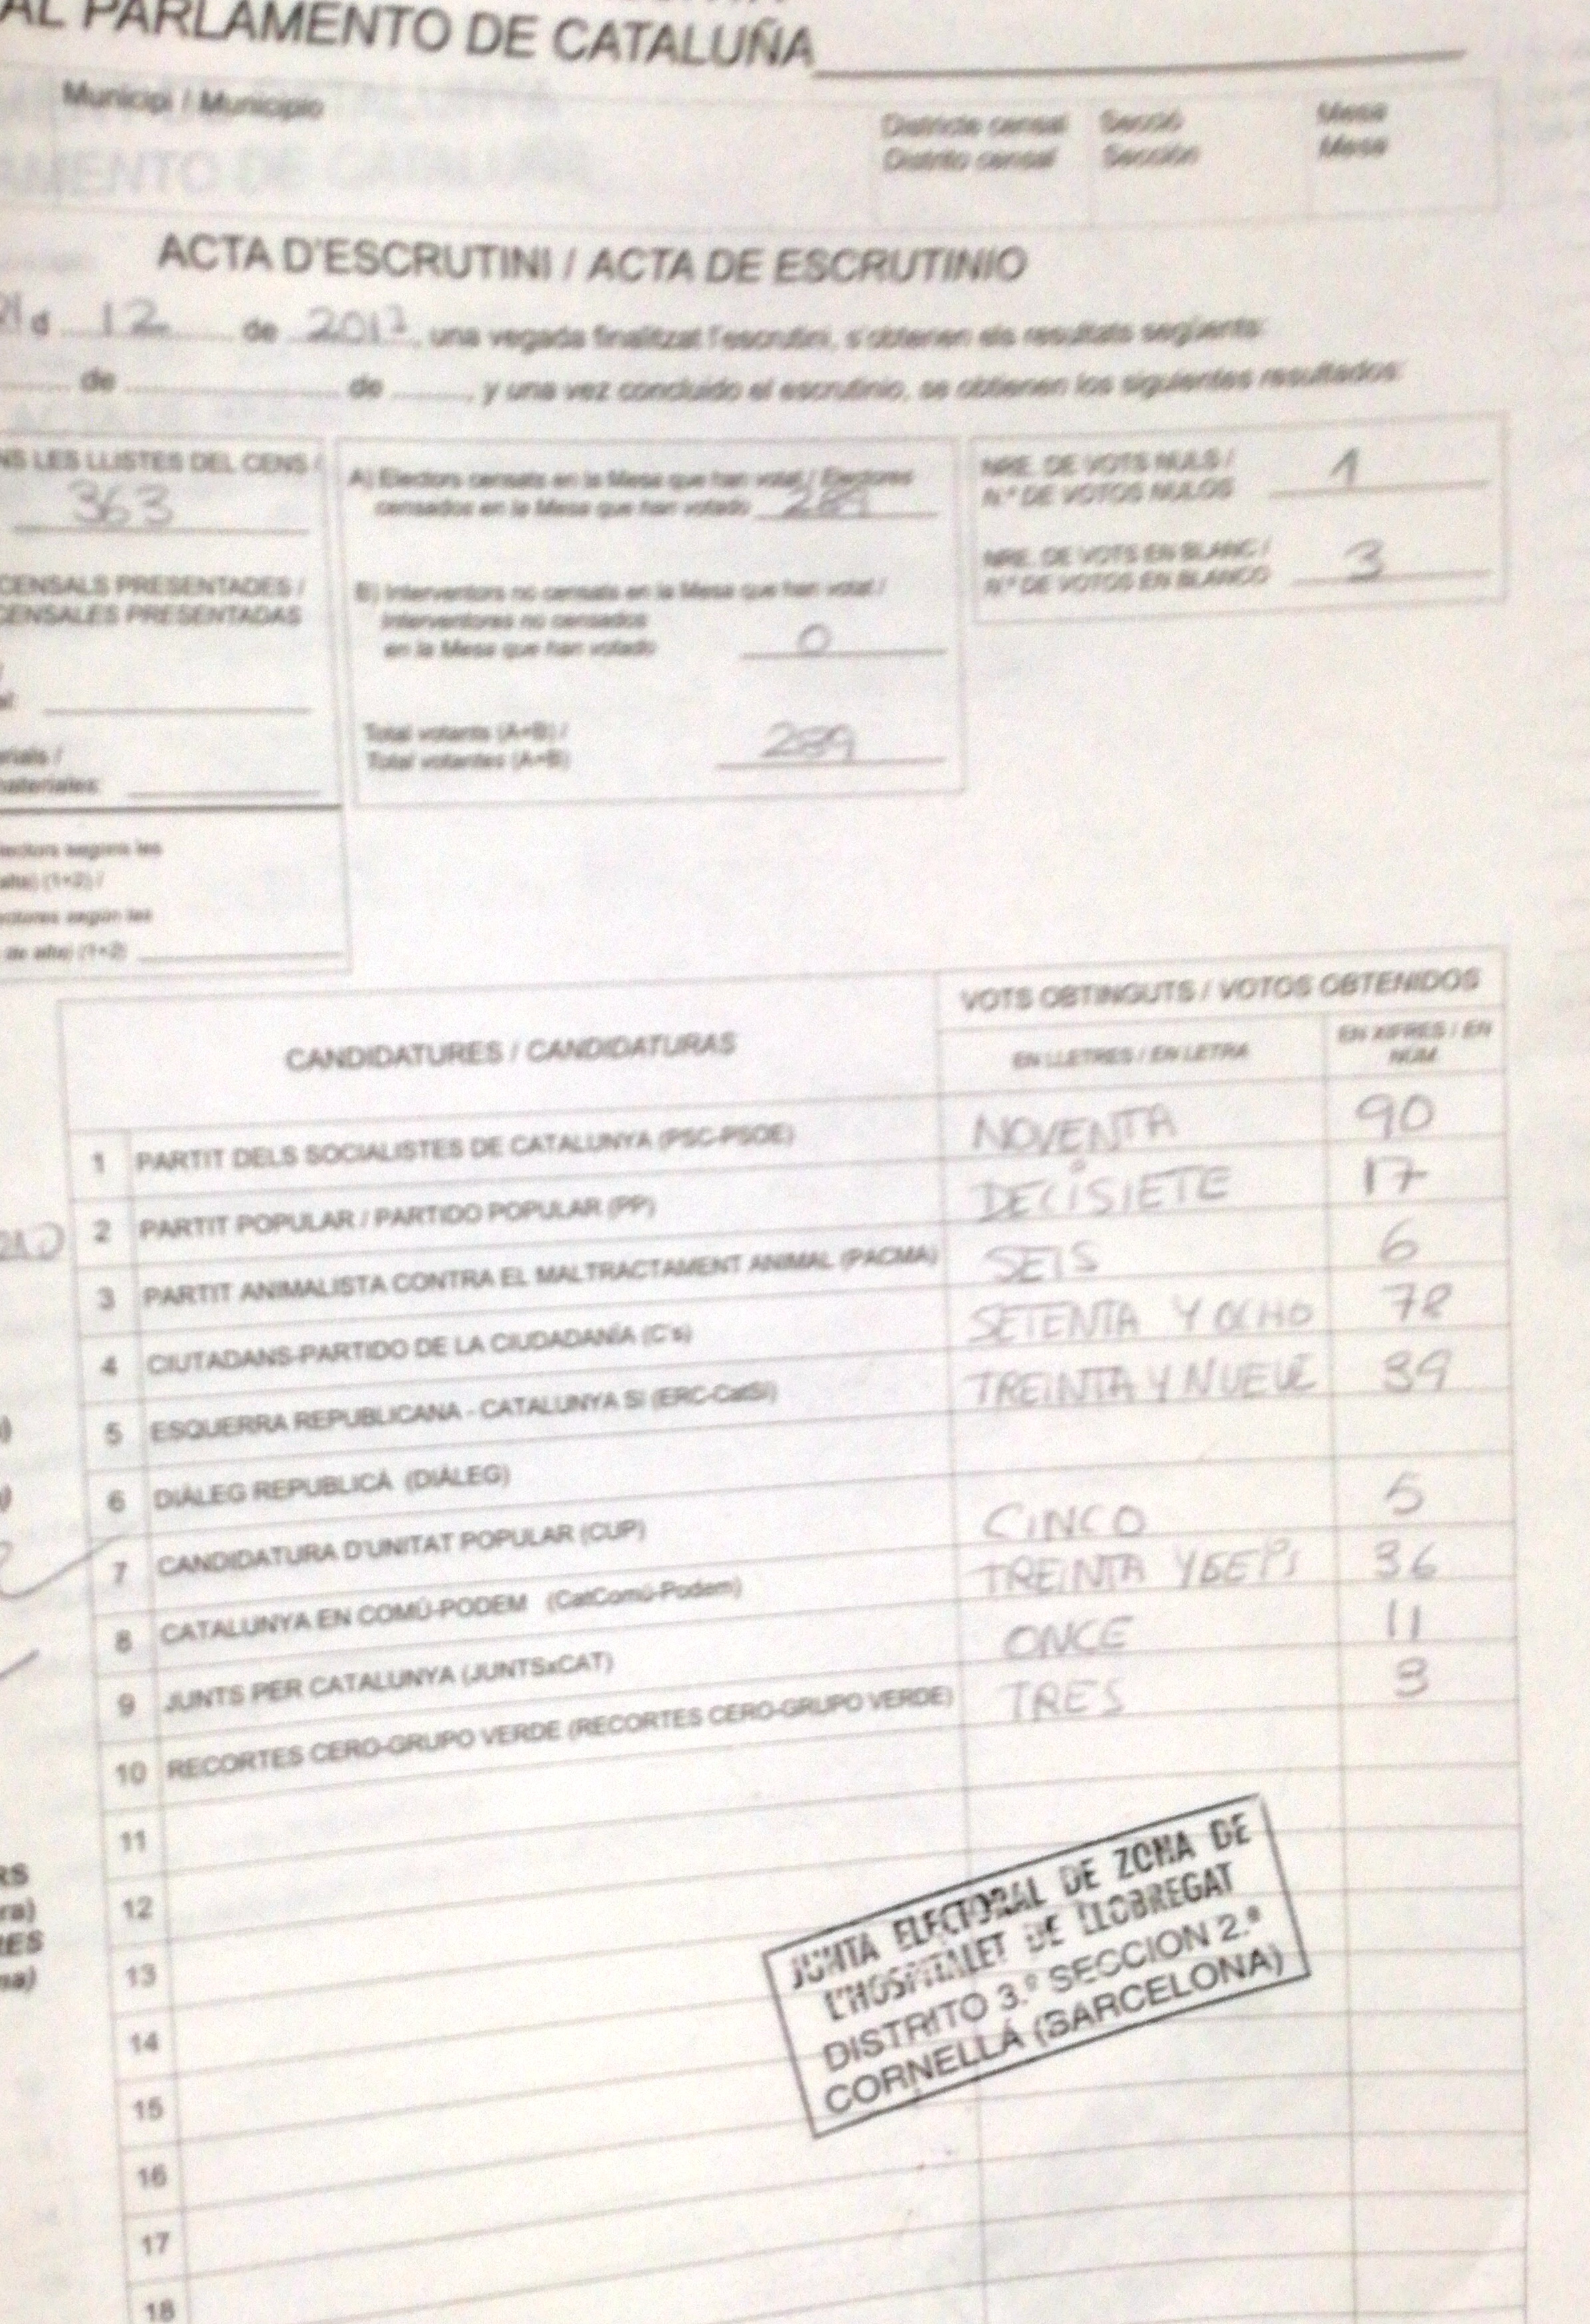 AL PARLAMENTO DE CATALUÑA
Municipi / Municipio
Districte censal Secció Mesa
Distrito censal Sección Mesa
ACTA D'ESCRUTINI / ACTA DE ESCRUTINIO
d 12 de 2017, una vegada finalitzat l'escrutini, s'obtenen els resultats següents:
de de , y una vez concluido el escrutinio, se obtienen los siguientes resultados:
NS LES LLISTES DEL CENS /
363
A) Electors censats en la Mesa que han votat / Electores
censados en la Mesa que han votado 289
NRE. DE VOTS NULS /
N.º DE VOTOS NULOS 1
NRE. DE VOTS EN BLANC /
N.º DE VOTOS EN BLANCO 3
CENSALS PRESENTADES /
CENSALES PRESENTADAS
B) Interventors no censats en la Mesa que han votat /
Interventores no censados
en la Mesa que han votado 0
Total votants (A+B) /
Total votantes (A+B) 289
erials /
materiales:
lectors segons les
alta) (1+2) /
ectores según las
de alta) (1+2)
CANDIDATURES / CANDIDATURAS
VOTS OBTINGUTS / VOTOS OBTENIDOS
EN LLETRES / EN LETRA
EN XIFRES / EN
NÚM.
1 PARTIT DELS SOCIALISTES DE CATALUNYA (PSC-PSOE) NOVENTA 90
2 PARTIT POPULAR / PARTIDO POPULAR (PP) DECISIETE 17
3 PARTIT ANIMALISTA CONTRA EL MALTRACTAMENT ANIMAL (PACMA) SEIS 6
4 CIUTADANS-PARTIDO DE LA CIUDADANÍA (C's) SETENTA Y OCHO 78
5 ESQUERRA REPUBLICANA - CATALUNYA SÍ (ERC-CatSí) TREINTA Y NUEVE 39
6 DIÀLEG REPUBLICÀ (DIÀLEG)
7 CANDIDATURA D'UNITAT POPULAR (CUP) CINCO 5
8 CATALUNYA EN COMÚ-PODEM (CatComú-Podem) TREINTA Y SEIS 36
9 JUNTS PER CATALUNYA (JUNTSxCAT) ONCE 11
10 RECORTES CERO-GRUPO VERDE (RECORTES CERO-GRUPO VERDE) TRES 3
11
12
13
14
15
16
17
18
RS
ra)
RES
na)
JUNTA ELECTORAL DE ZONA DE
L'HOSPITALET DE LLOBREGAT
DISTRITO 3.º SECCION 2.ª
CORNELLÁ (BARCELONA)